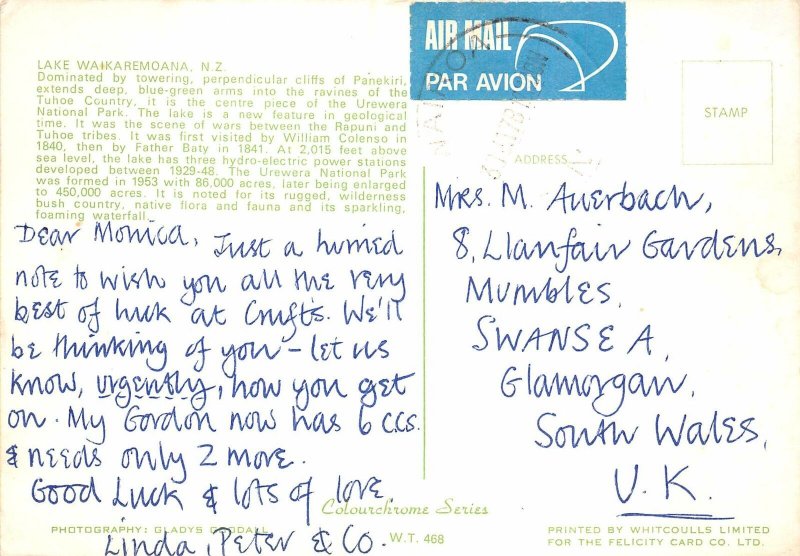 AIR MAIL
PAR AVION
LAKE WAIKAREMOANA, N.Z.
Dominated by towering, perpendicular cliffs of Panekiri,
extends deep, blue-green arms into the ravines of the
Tuhoe Country, it is the centre piece of the Urewera
National Park. The lake is a new feature in geological
time. It was the scene of wars between the Rapuni and
Tuhoe tribes. It was first visited by William Colenso in
1840, then by Father Baty in 1841. At 2,015 feet above
sea level, the lake has three hydro-electric power stations
developed between 1929-48. The Urewera National Park
was formed in 1953 with 86,000 acres, later being enlarged
to 450,000 acres. It is noted for its rugged, wilderness
bush country, native flora and fauna and its sparkling,
foaming waterfall.
Dear Monica, Just a hurried
note to wish you all the very
best of luck at Crufts. We'll
be thinking of you - let us
know, urgently, how you get
on. My Gordon now has 6 CCs.
& needs only 2 more.
Good Luck & lots of love
Linda, Peter & Co.
STAMP
ADDRESS
Mrs. M. Auerbach,
8, Llanfair Gardens,
Mumbles,
SWANSEA,
Glamorgan,
South Wales,
U.K.
Colourchrome Series
PHOTOGRAPHY: GLADYS GOODALL
W.T. 468
PRINTED BY WHITCOULLS LIMITED
FOR THE FELICITY CARD CO. LTD.